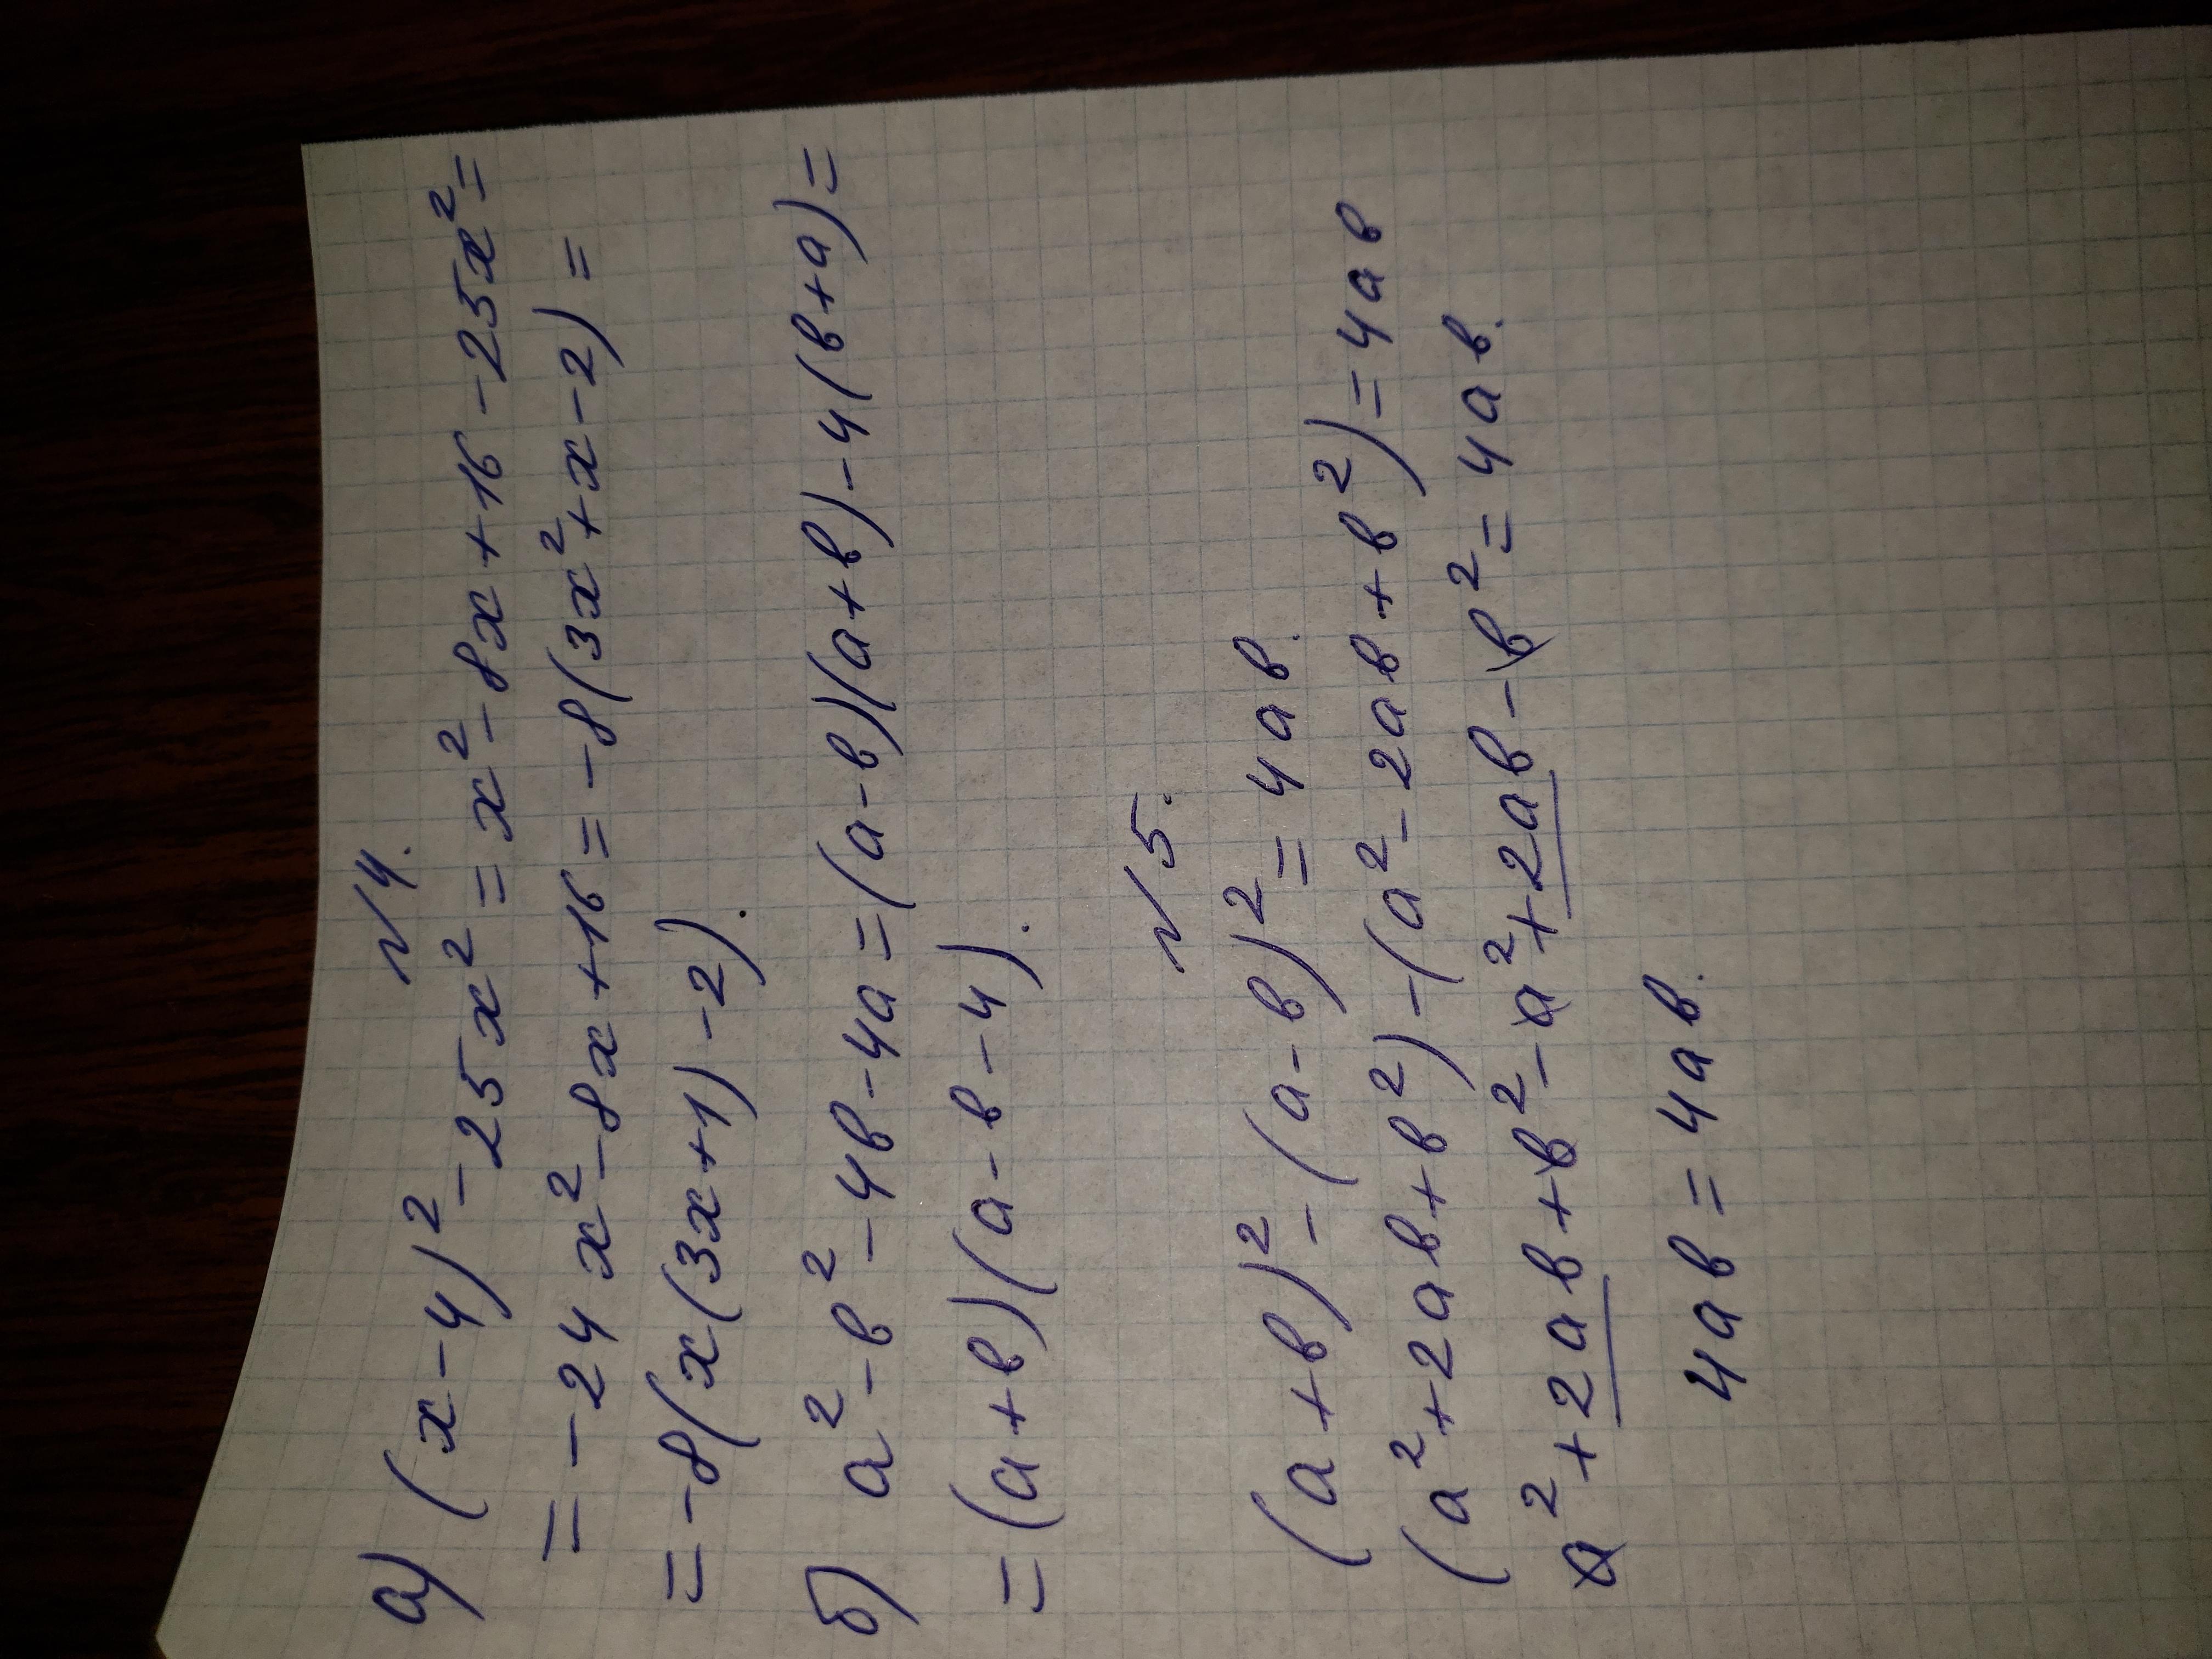 №4.
а) (x-4)²-25x²=x²-8x+16-25x²=
=-24x²-8x+16=-8(3x²+x-2)=
=-8(x(3x+1)-2).
б) a²-в²-4в-4a=(a-в)(a+в)-4(в+a)=
=(a+в)(a-в-4).
№5.
(a+в)²-(a-в)²=4aв.
(a²+2aв+в²)-(a²-2aв+в²)=4aв
a²+2aв+в²-a²+2aв-в²=4aв.
4aв=4aв.